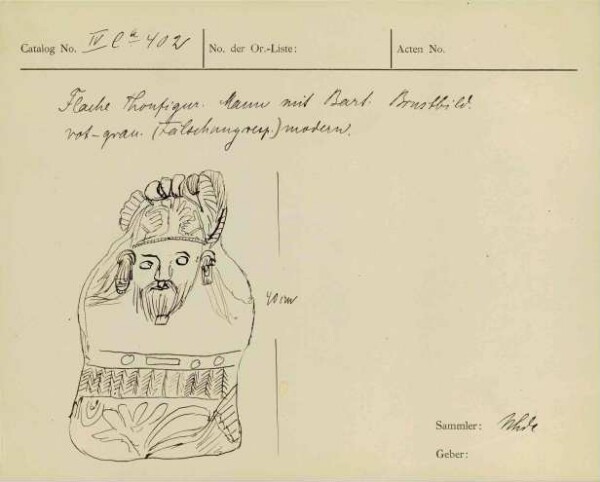 Catalog No. IV Ca 402 No. der Or.-Liste: Acten No.
Flache Thonfigur. Mann mit Bart. Brustbild.
rot-grau. (Fälschung resp.) modern.
40 cm
Sammler: Uhde
Geber: